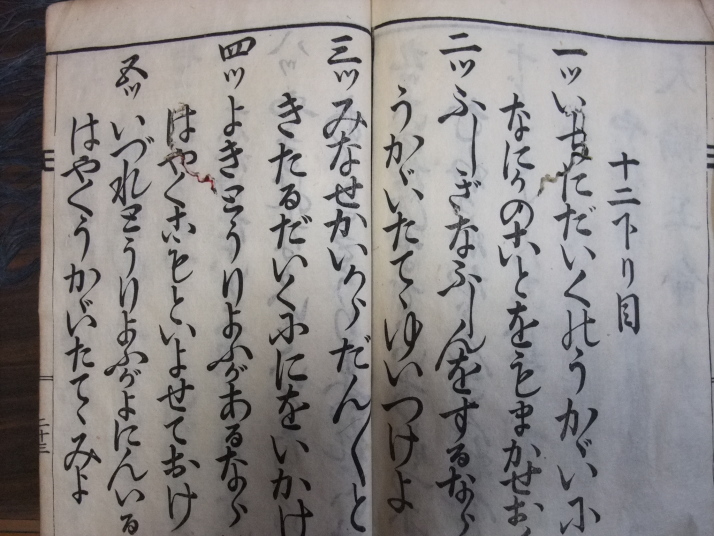 十二下り目
一ツいちにだいくのうかゞいに
なにかのこいとをもまかせお
二ツふしぎなふしんをするなら
うかゞいたてゝゆいつけよ
三ツみなせかいからだん〱と
きたるだいくににをいかけ
四ツよきとうりよふがあるなら
はやくこもといよせておけ
五ツいづれとうりよふがよにんいる
はやくうかゞいたてゝみよ
二十三